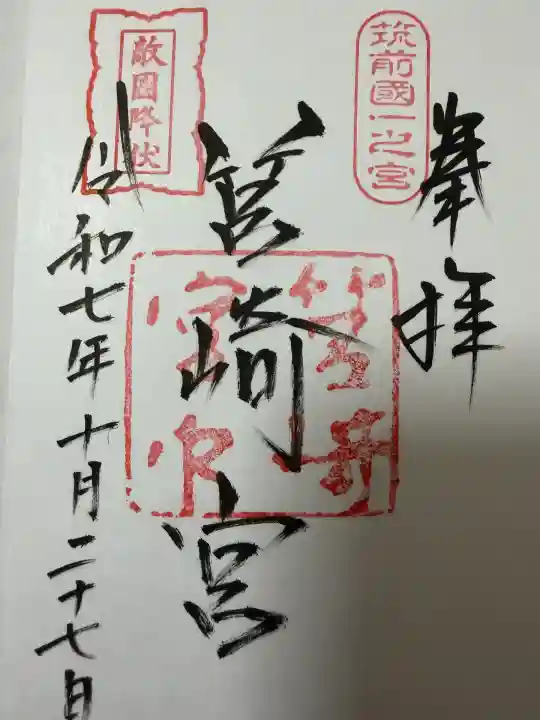 筑前國一之宮
奉拝
筥崎宮
敵國降伏
令和七年十月二十七日